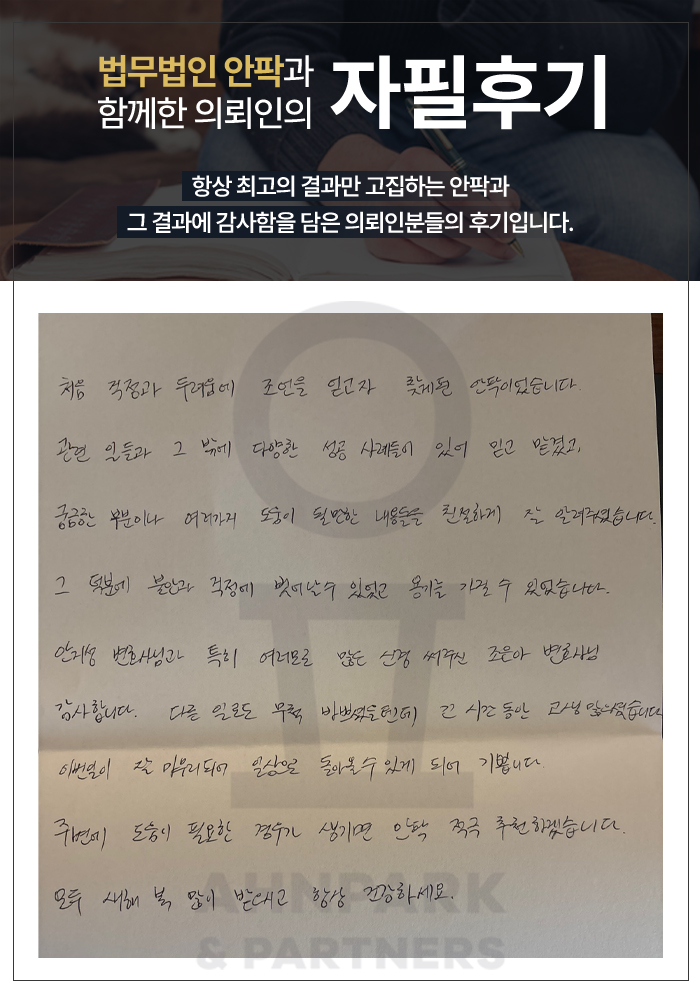 법무법인 안팍과
함께한 의뢰인의
자필후기
항상 최고의 결과만 고집하는 안팍과
그 결과에 감사함을 담은 의뢰인분들의 후기입니다.
처음 걱정과 두려움에 조언을 얻고자 찾게된 안팍이었습니다.
관련 일들과 그 밖에 다양한 성공 사례들이 있어 믿고 맡겼고,
궁금한 부분이나 여러가지 도움이 필요한 내용들을 친절하게 잘 알려주셨습니다.
그 덕분에 불안과 걱정에 벗어날수 있었고 용기를 가질 수 있었습니다.
안지성 변호사님과 특히 여러모로 많은 신경 써주신 조은아 변호사님
감사합니다. 다른 일로도 무척 바쁘셨을텐데 긴 시간동안 고생 많으셨습니다
이번일이 잘 마무리되어 일상으로 돌아올수 있게 되어 기쁩니다.
주변에 도움이 필요한 경우가 생기면 안팍 적극 추천하겠습니다.
모두 새해 복 많이 받으시고 항상 건강하세요.
AHNPARK
& PARTNERS